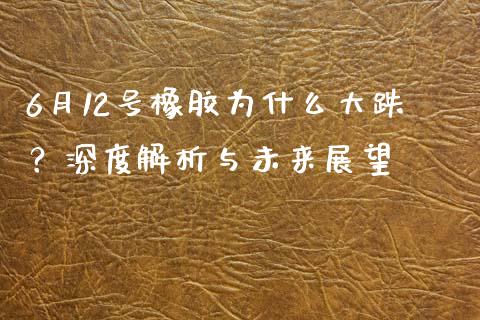 6月12号橡胶为什么大跌
？深度解析与未来展望